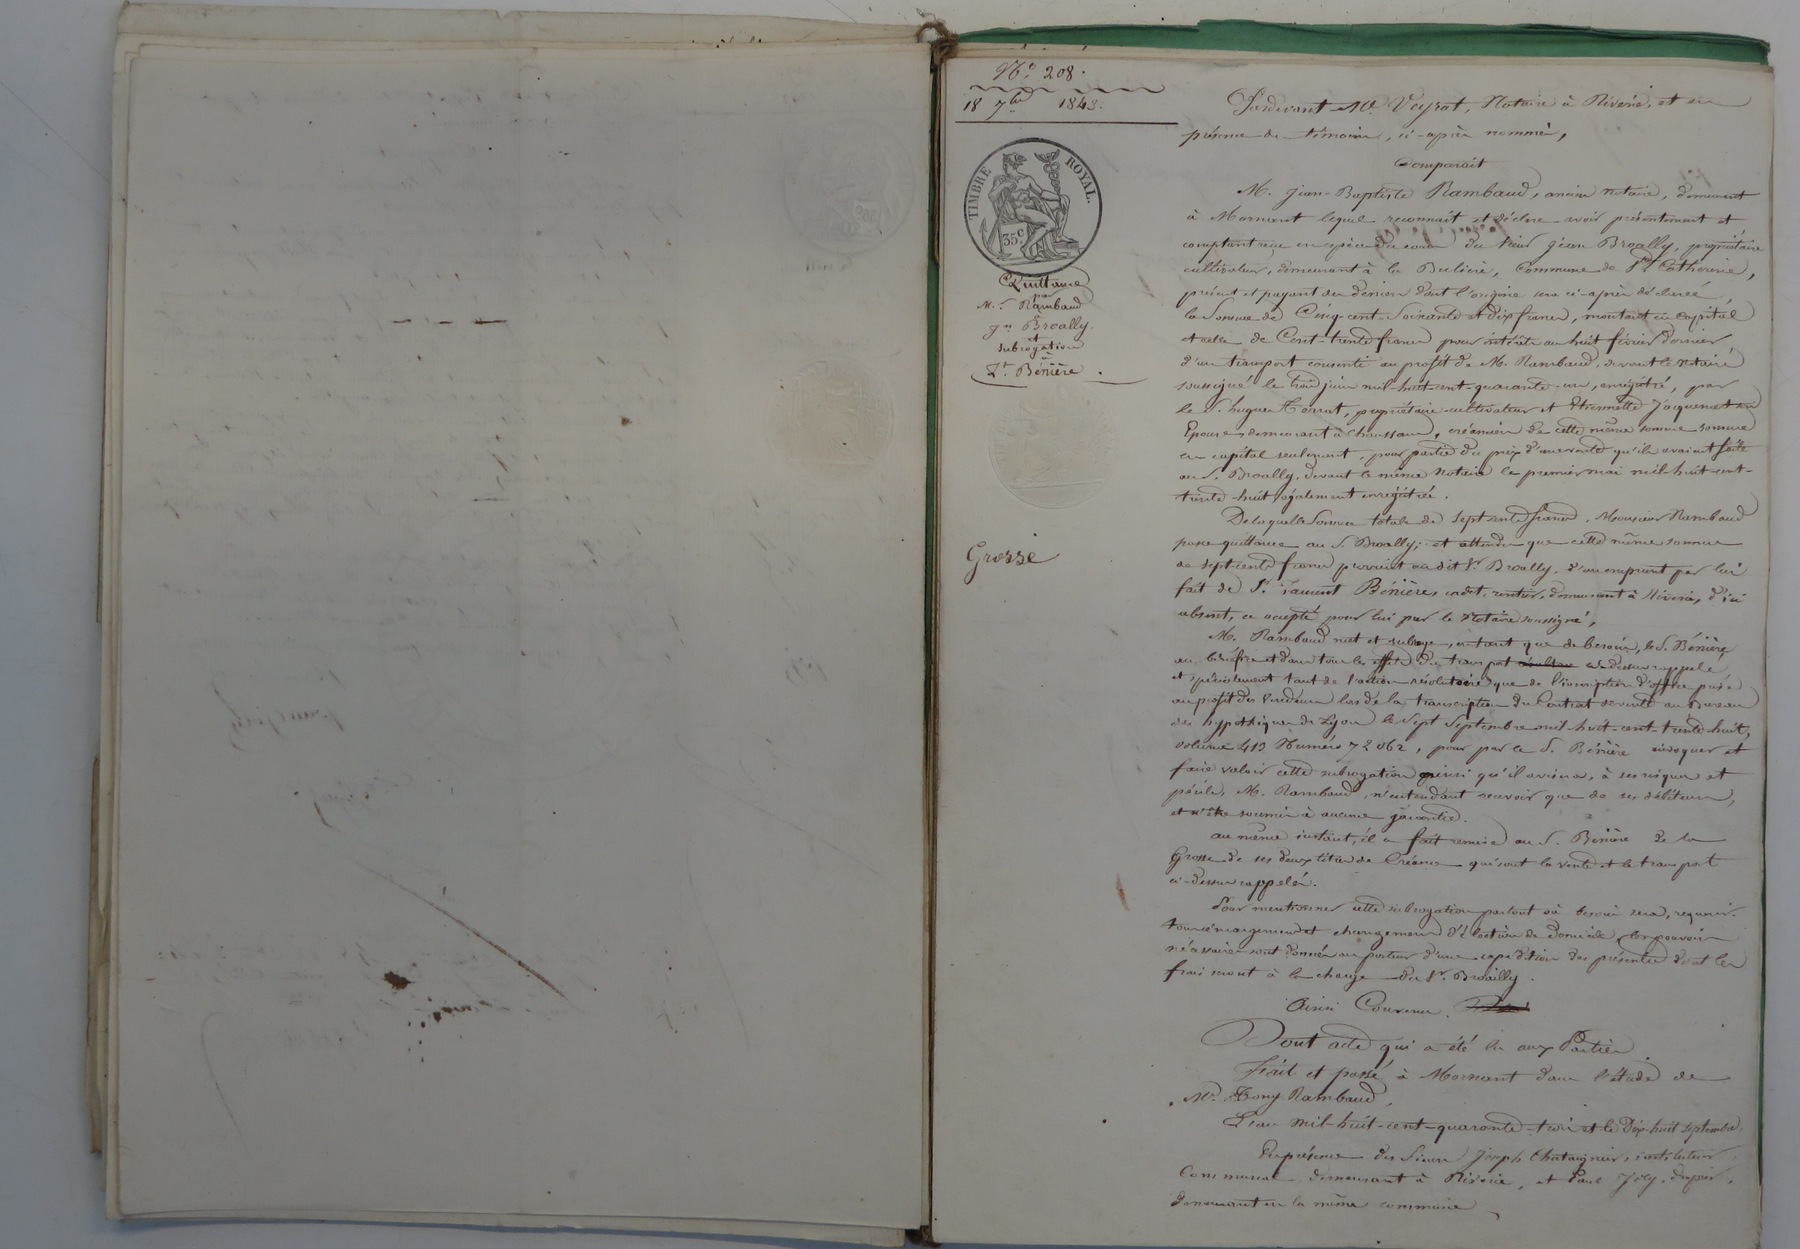 N.° 208.
18 7bre 1843.
TIMBRE ROYAL.
35.c
Quittance
par
M.r Rambaud
à
J.n Broally.
et
subrogation
à
L.t Bénière.
Grosse
Pardevant M.e Veyrat, Notaire à Riverie, et en
présence des témoins, ci-après nommés,
Comparait
M. Jean-Baptiste Rambaud, ancien notaire, demeurant
à Mornant lequel reconnait et déclare avoir présentement et
comptant reçu en espèces du cours du sieur Jean Broally, propriétaire
cultivateur, demeurant à la Bulière, Commune de Ste Catherine,
présent et payant des deniers dont l'origine sera ci-après déclarée,
la Somme de Cinq-cent-Soixante et dix francs, montant en Capital
et celle de Cent-trente francs pour intérêts au huit février dernier
d'un transport consenti au profit de M. Rambaud, devant le notaire
soussigné le trois juin mil-huit-cent-quarante-un, enregistré, par
le S. hugues Terrat, propriétaire-cultivateur et Etiennette Jacquemet son
Epouse, demeurant à Chaussan, créanciers de cette même somme somme
en capital seulement, pour partie du prix d'une vente qu'ils avaient faite
au S. Broally, devant le même Notaire le premier mai mil-huit-cent-
trente-huit également enregistrée.
De laquelle Somme totale de Sept cents francs, Monsieur Rambaud
passe quittance au S. Broally; et attendu que cette même somme
de sept-cents francs provient au dit Sr Broally, d'un emprunt par lui
fait de Sr Laurent Bénière, cadet, rentier, demeurant à Riverie, d'ici
absent, ce accepté pour lui par le Notaire soussigné,
M. Rambaud met et subroge, en tant que de besoin, le S. Bénière
au bénéfice et dans tous les effets du transport ci-dessus rappelé
et spécialement tant de l'action résolutoire que de l'inscription d'office prise
au profit des Vendeurs lors de la transcription du Contrat de vente au Bureau
des hypothèques de Lyon le sept Septembre mil-huit-cent-trente-huit,
volume 413 Numéro 72062, pour par le S. Bénière invoquer et
faire valoir cette subrogation ainsi qu'il avisera, à ses risques et
périls, M. Rambaud, n'entendant recevoir que de ses débiteurs,
et n'être soumis à aucune garantie.
au même instant, il a fait remise au S. Bénière de la
Grosse de ses deux titres de Créance qui sont la vente et le transport
ci-dessus rappelés.
Pour mentionner cette subrogation partout où besoin sera, requérir
tous émargements et changements d'élection de domicile, les pouvoirs
nécessaires sont donnés au porteur d'une expédition des présentes dont les
frais seront à la charge du Sr. Broailly.
Ainsi Convenu.
Dont acte qui a été lu aux Parties
Fait et passé à Mornant dans l'étude de
Me Tony Rambaud,
L'an mil-huit-cent-quarante-trois et le Dix-huit septembre,
En présence des Sieurs Joseph Chataignier, instituteur
Communal demeurant à Riverie, et Paul Joly, drapier,
demeurant en la même commune